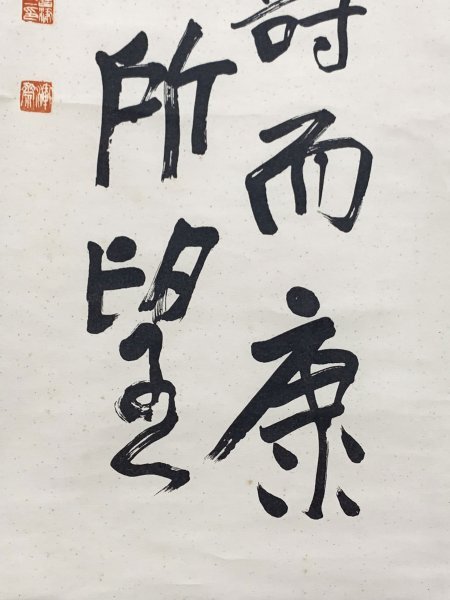 壽而康
所望